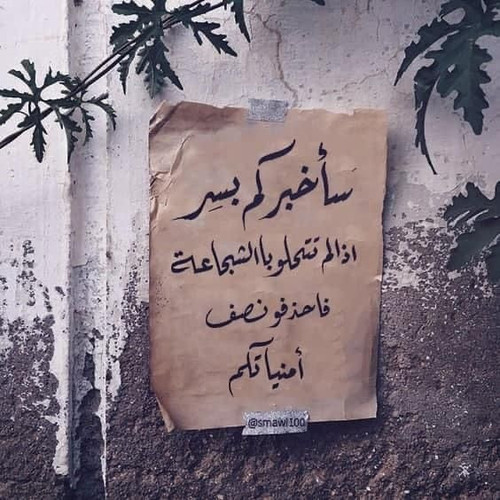 سأخبركم بسر
اذالم تتحلو باالشجاعة
فاحذفو نصف
أمنياتكم
@smawl100